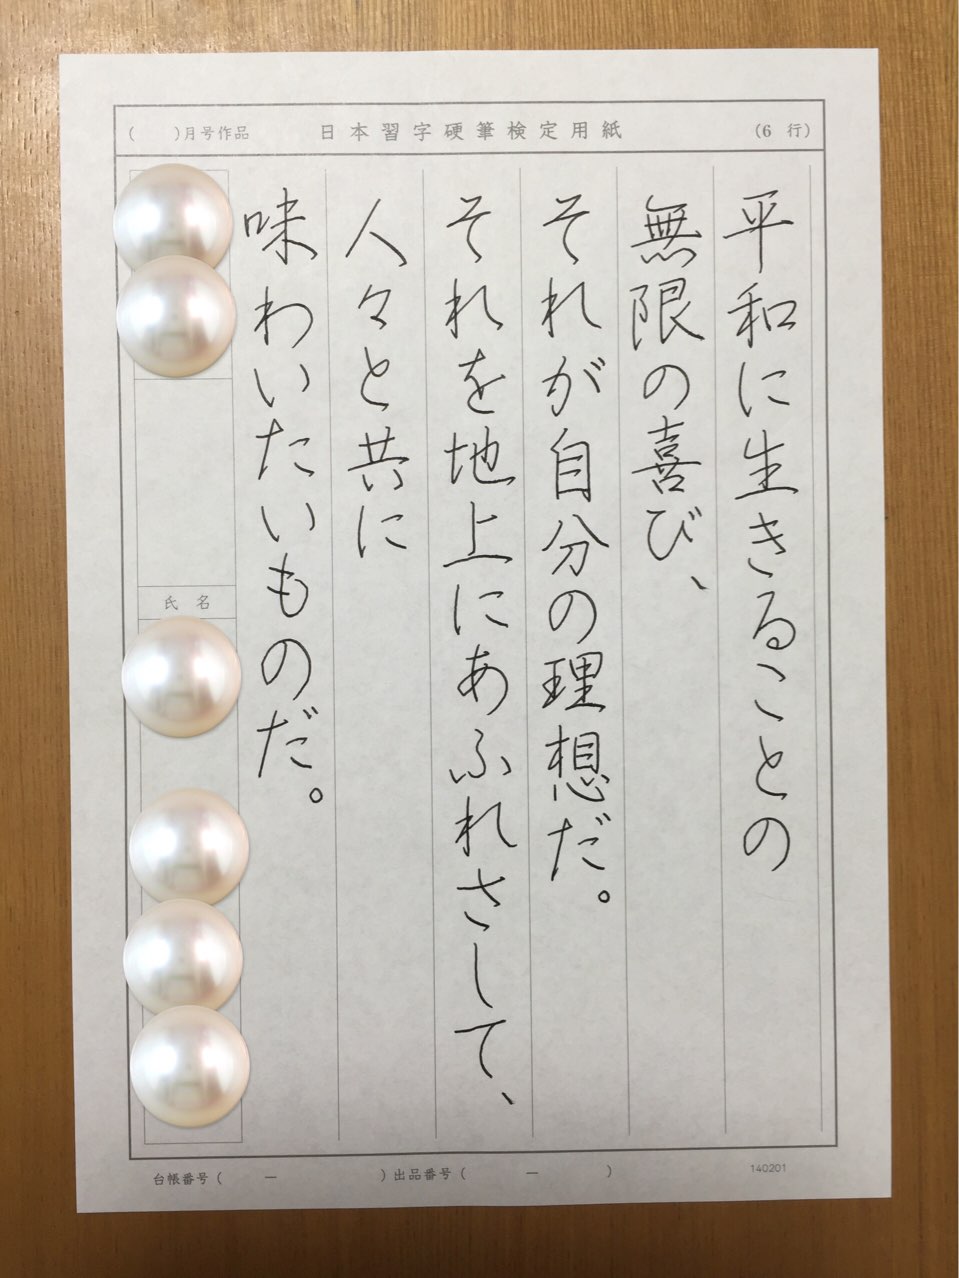 ( )月号作品 日本習字硬筆検定用紙 (6 行)
平和に生きることの
無限の喜び、
それが自分の理想だ。
それを地上にあふれさして、
人々と共に
味わいたいものだ。
氏 名
台帳番号( ー )出品番号( ー )
140201